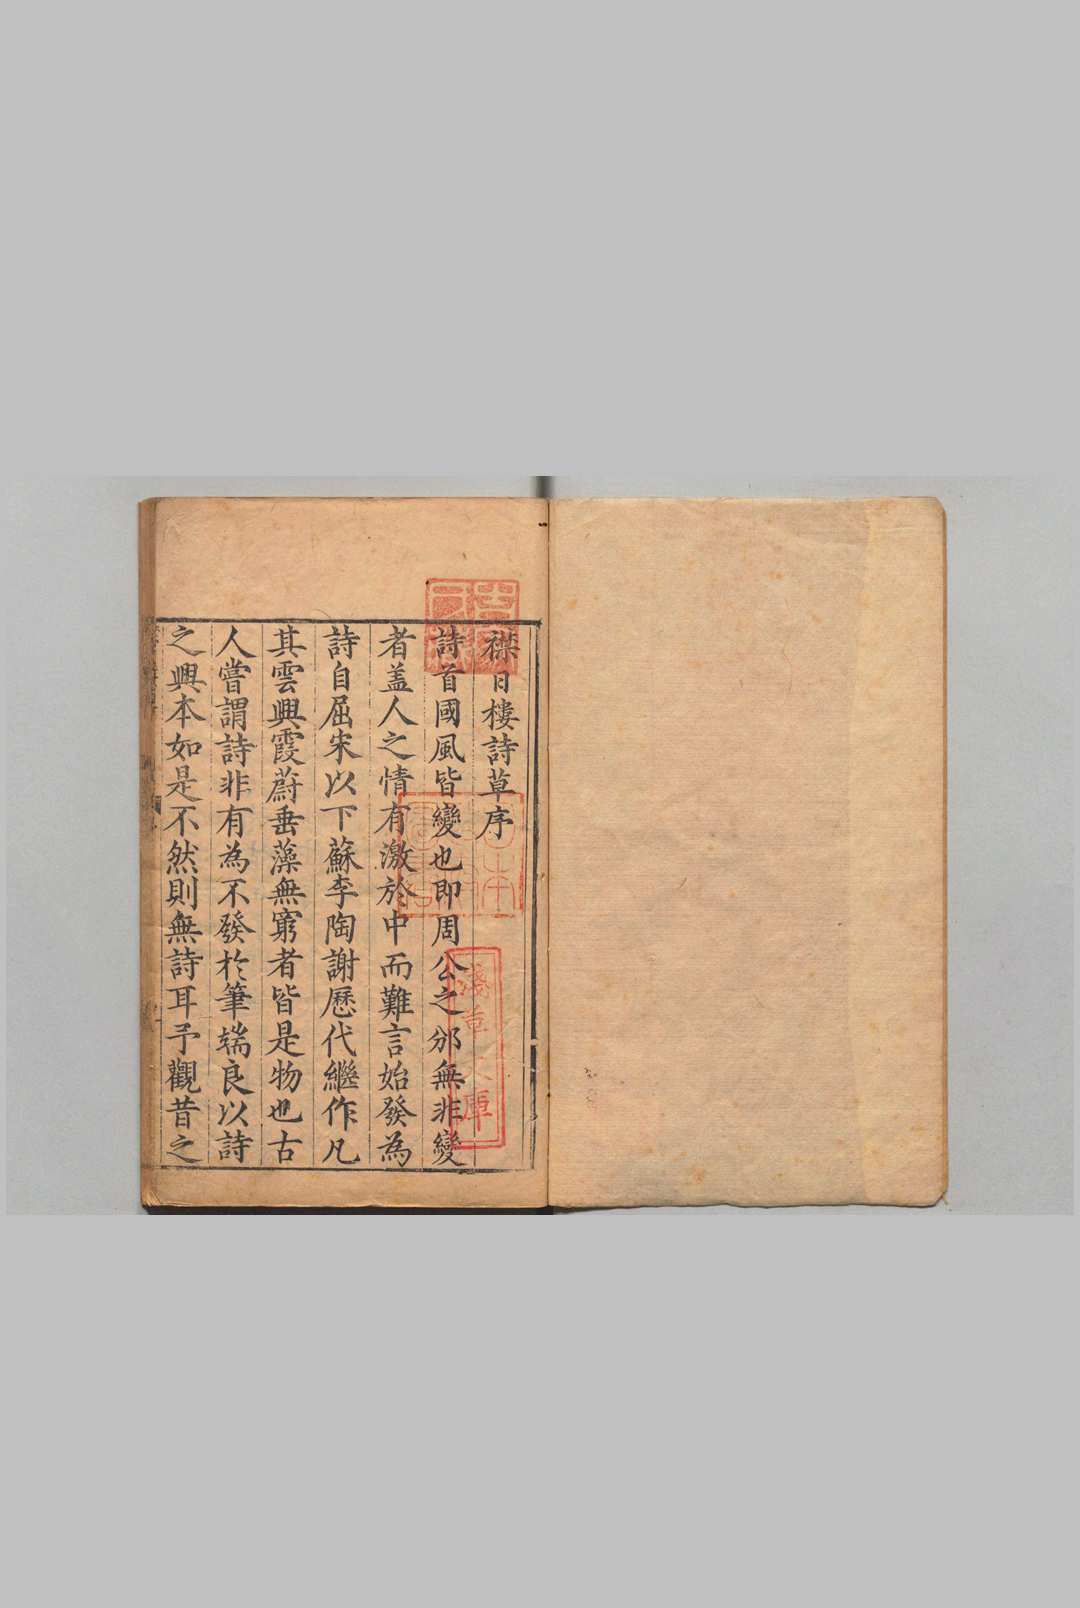 襟日樓詩草序
詩首國風皆變也即周公之邠無非變
者盖人之情有激於中而難言始發為
詩自屈宋以下蘇李陶謝歷代繼作凡
其雲興霞蔚垂藻無窮者皆是物也古
人嘗謂詩非有為不發於筆端良以詩
之興本如是不然則無詩耳予觀昔之
淺草文庫